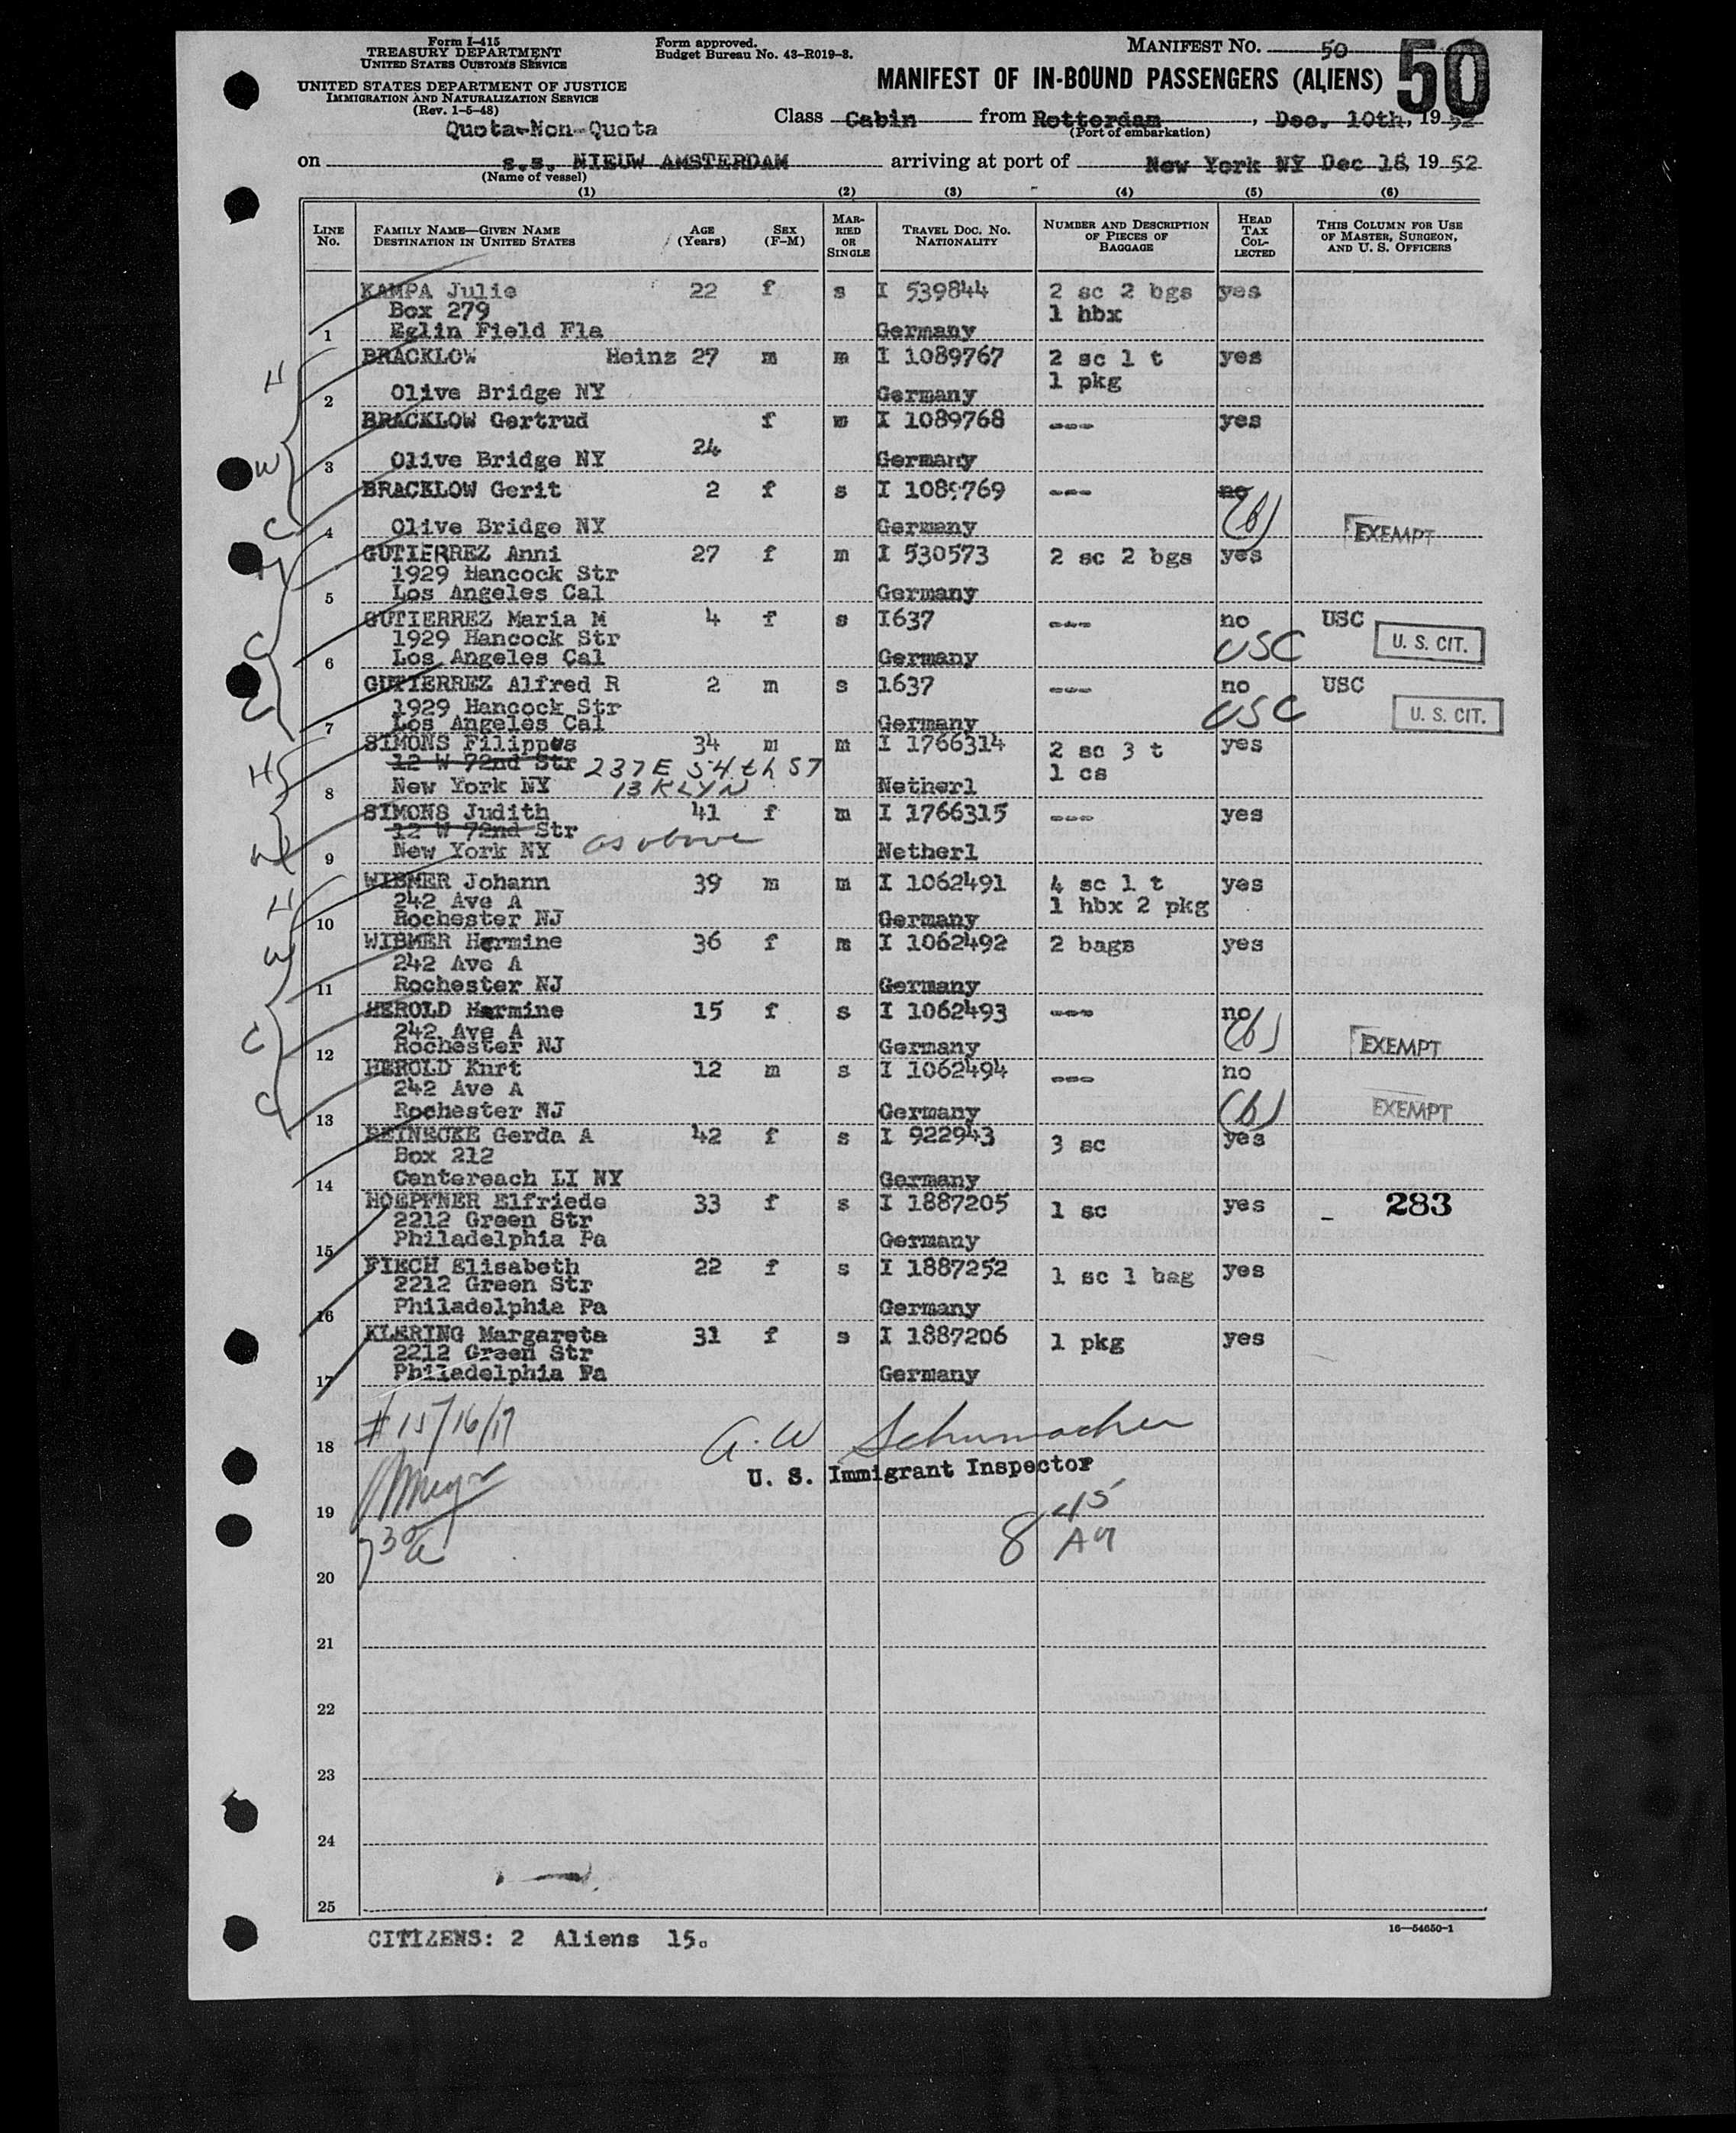 Form I-415
TREASURY DEPARTMENT
UNITED STATES CUSTOMS SERVICE
UNITED STATES DEPARTMENT OF JUSTICE
IMMIGRATION AND NATURALIZATION SERVICE
(Rev. 1-5-48)
Form approved.
Budget Bureau No. 43-R019-3.
MANIFEST NO. 50
50
MANIFEST OF IN-BOUND PASSENGERS (ALIENS)
Quota-Non-Quota
Class Cabin from Rotterdam, Dec. 10th, 1952
(Port of embarkation)
on s.s. NIEUW AMSTERDAM arriving at port of New York NY Dec 18, 1952
(Name of vessel)
(1) (2) (3) (4) (5) (6)
LINE NO. FAMILY NAME—GIVEN NAME DESTINATION IN UNITED STATES AGE (YEARS) SEX (F-M) MARRIED OR SINGLE TRAVEL DOC. NO. NATIONALITY NUMBER AND DESCRIPTION OF PIECES OF BAGGAGE HEAD TAX COLLECTED THIS COLUMN FOR USE OF MASTER, SURGEON, AND U. S. OFFICERS
KAMPA Julie 22 f s I 539844 2 sc 2 bgs yes
Box 279 1 hbx
1 Eglin Field Fla Germany
BRACKLOW Heinz 27 m m I 1089767 2 sc 1 t yes
H 1 pkg
2 Olive Bridge NY Germany
BRACKLOW Gertrud f m I 1089768 --- yes
W 24
3 Olive Bridge NY Germany
BRACKLOW Gerit 2 f s I 1089769 --- no
C (b)
4 Olive Bridge NY Germany EXEMPT
GUTIERREZ Anni 27 f m I 530573 2 sc 2 bgs yes
1929 Hancock Str
5 Los Angeles Cal Germany
GUTIERREZ Maria M 4 f s I637 --- no USC
C 1929 Hancock Str USC U. S. CIT.
6 Los Angeles Cal Germany
GUTIERREZ Alfred R 2 m s 1637 --- no USC
C 1929 Hancock Str USC U. S. CIT.
7 Los Angeles Cal Germany
SIMONS Filippus 34 m m I 1766314 2 sc 3 t yes
H 12 W 72nd Str 237 E 54th ST 1 cs
8 New York NY BKLYN Netherl
SIMONS Judith 41 f m I 1766315 --- yes
W 12 W 72nd Str as above
9 New York NY Netherl
WIBMER Johann 39 m m I 1062491 4 sc 1 t yes
H 242 Ave A 1 hbx 2 pkg
10 Rochester NJ Germany
WIBMER Hermine 36 f m I 1062492 2 bags yes
W 242 Ave A
11 Rochester NJ Germany
HEROLD Hermine 15 f s I 1062493 --- no
C 242 Ave A (b)
12 Rochester NJ Germany EXEMPT
HEROLD Kurt 12 m s I 1062494 --- no
C 242 Ave A (b) EXEMPT
13 Rochester NJ Germany
REINECKE Gerda A 42 f s I 922943 3 sc yes
Box 212
14 Centereach LI NY Germany
HOEPFNER Elfriede 33 f s I 1887205 1 sc yes 283
2212 Green Str
15 Philadelphia Pa Germany
FIECH Elisabeth 22 f s I 1887252 1 sc 1 bag yes
2212 Green Str
16 Philadelphia Pa Germany
KLERING Margareta 31 f s I 1887206 1 pkg yes
2212 Green Str
17 Philadelphia Pa Germany
# 15/16/17
18 A. W Schumacher
U. S. Immigrant Inspector
19 8 45 AM
730 a
20
21
22
23
24
25
CITIZENS: 2 Aliens 15.
16—54650-1